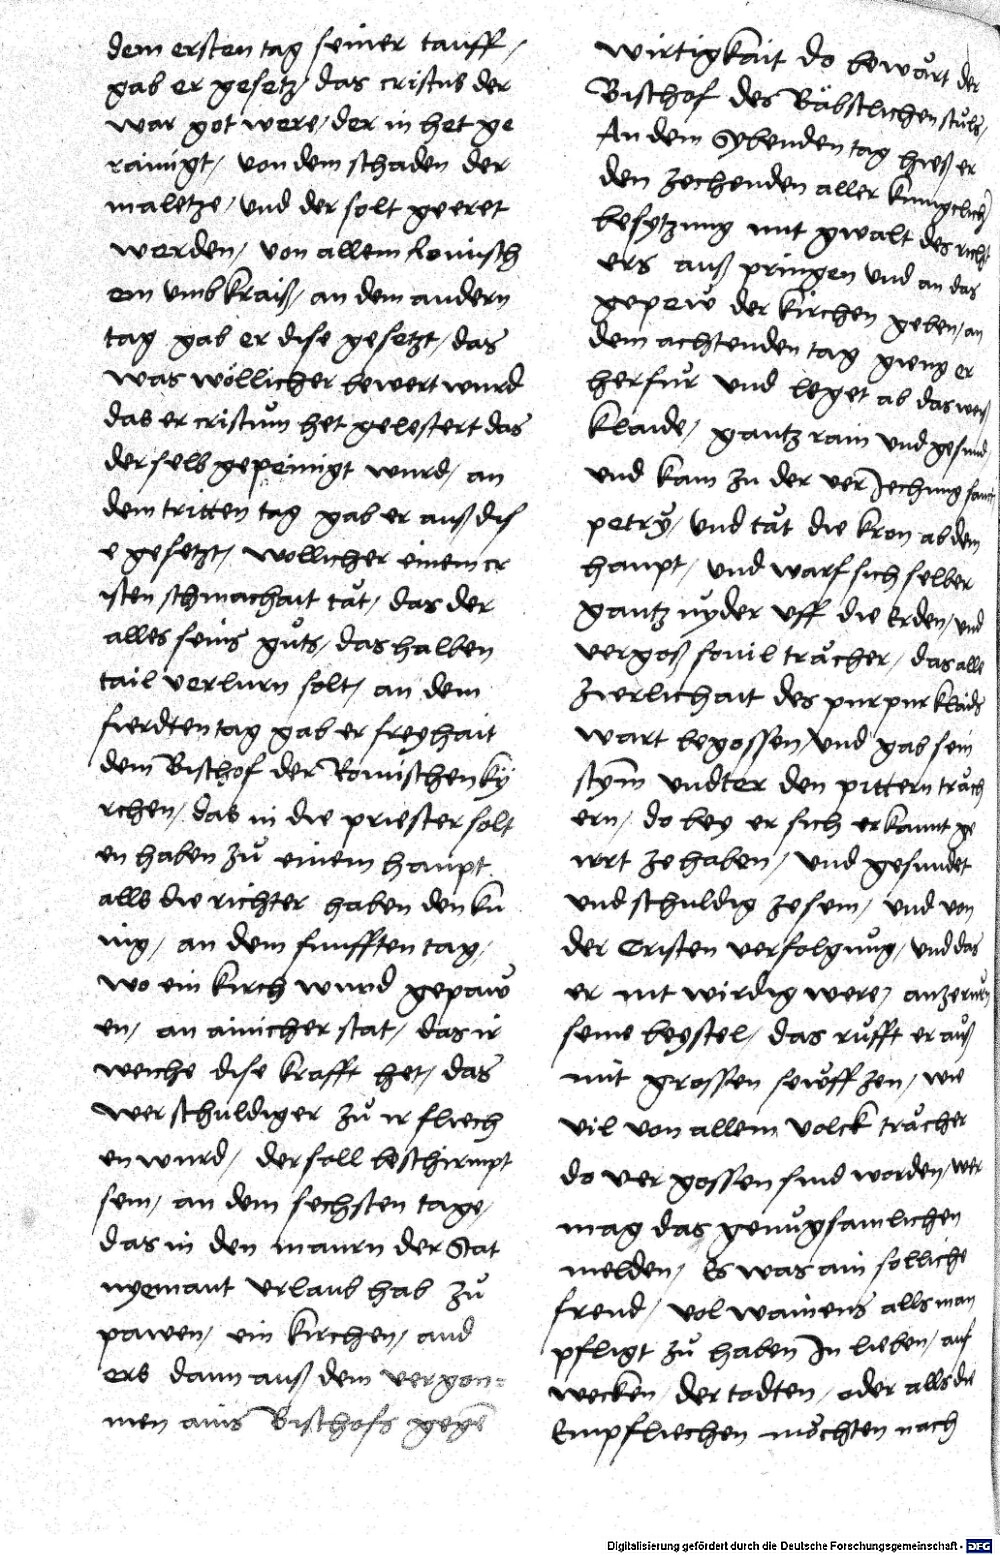 dem ersten tag seiner tauff /
gab er gesetz / das cristus der
war got were / der in het ge
rainigt / von dem schaden der
maletze / vnd der solt geeret
werden / von allem Romisch
em vmbkraiß / an dem andern
tag gab er dise gesetzt / das
was wöllicher bewert wurd
das er cristum het gelestert das
der selb gepeinigt wurd / an
dem tritten tag gab er auß dis
e gesetzt / wollicher einem cr
isten schmachait tät / das der
alles seins guts / das halben
tail verlurn solt / an dem
fierdten tag gab er freyhait
dem Bischof der Romischen ky
rchen / das in die priester solt
en haben zu einem haupt
alls die richter haben den ku
nig / an dem funfften tag /
wo ein kirch wurd gepaw
en / an ainicher stat / das ir
weiche dise krafft het / das
wer schuldiger zu ir fliech
en wurd / der soll beschirmpt
sein / an dem sechsten tage /
das in den maurn der Stat
nyemant vrlaub hab zu
pawen / ein kirchen / and
ers dann auß dem vergon=
nen ains Bischofs gegē
wirtigkait do bewart der
Bischof des Bäbstlichen stuls /
An dem Sybenden tag hieß er
den zechenden aller kunigclich
besytzung mit gwalt des richt
ers auß pringen vnd an das
gepew der kirchen geben / an
dem achtenden tag gieng er
herfur vnd leget ab das weiß
klaide / gantz rain vnd gesund /
vnd kam zu der verJechung sant
petry / vnd tät die kron ab dem
haupt / vnd warf sich selber
gantz nyder vff die Erden / vnd
vergoß souil trächer / das alle
zierlichait des purpur klaids
wart begossen / vnd gab sein
stym vndter den pittern träch
ern / do bey er sich erkannt ge
irrt ze haben / vnd gesundet
vnd schuldig ze sein / vnd von
der Cristen verfolgnug / vnd das
er nit wirdig were / anzerurn
seine beystel / das rufft er auß
mit grossen sewffzen / wie
vil von allem volck trächer
do vergossen sind worden / wer
mag das genugsamlichen
melden / Es was ain solliche
freud / vol wainens alls man
pfligt zu haben In lieben / auf
wecken / der todten / oder alls die
Empfliechen möchten nach
Digitalisierung gefördert durch die Deutsche Forschungsgemeinschaft - DFG